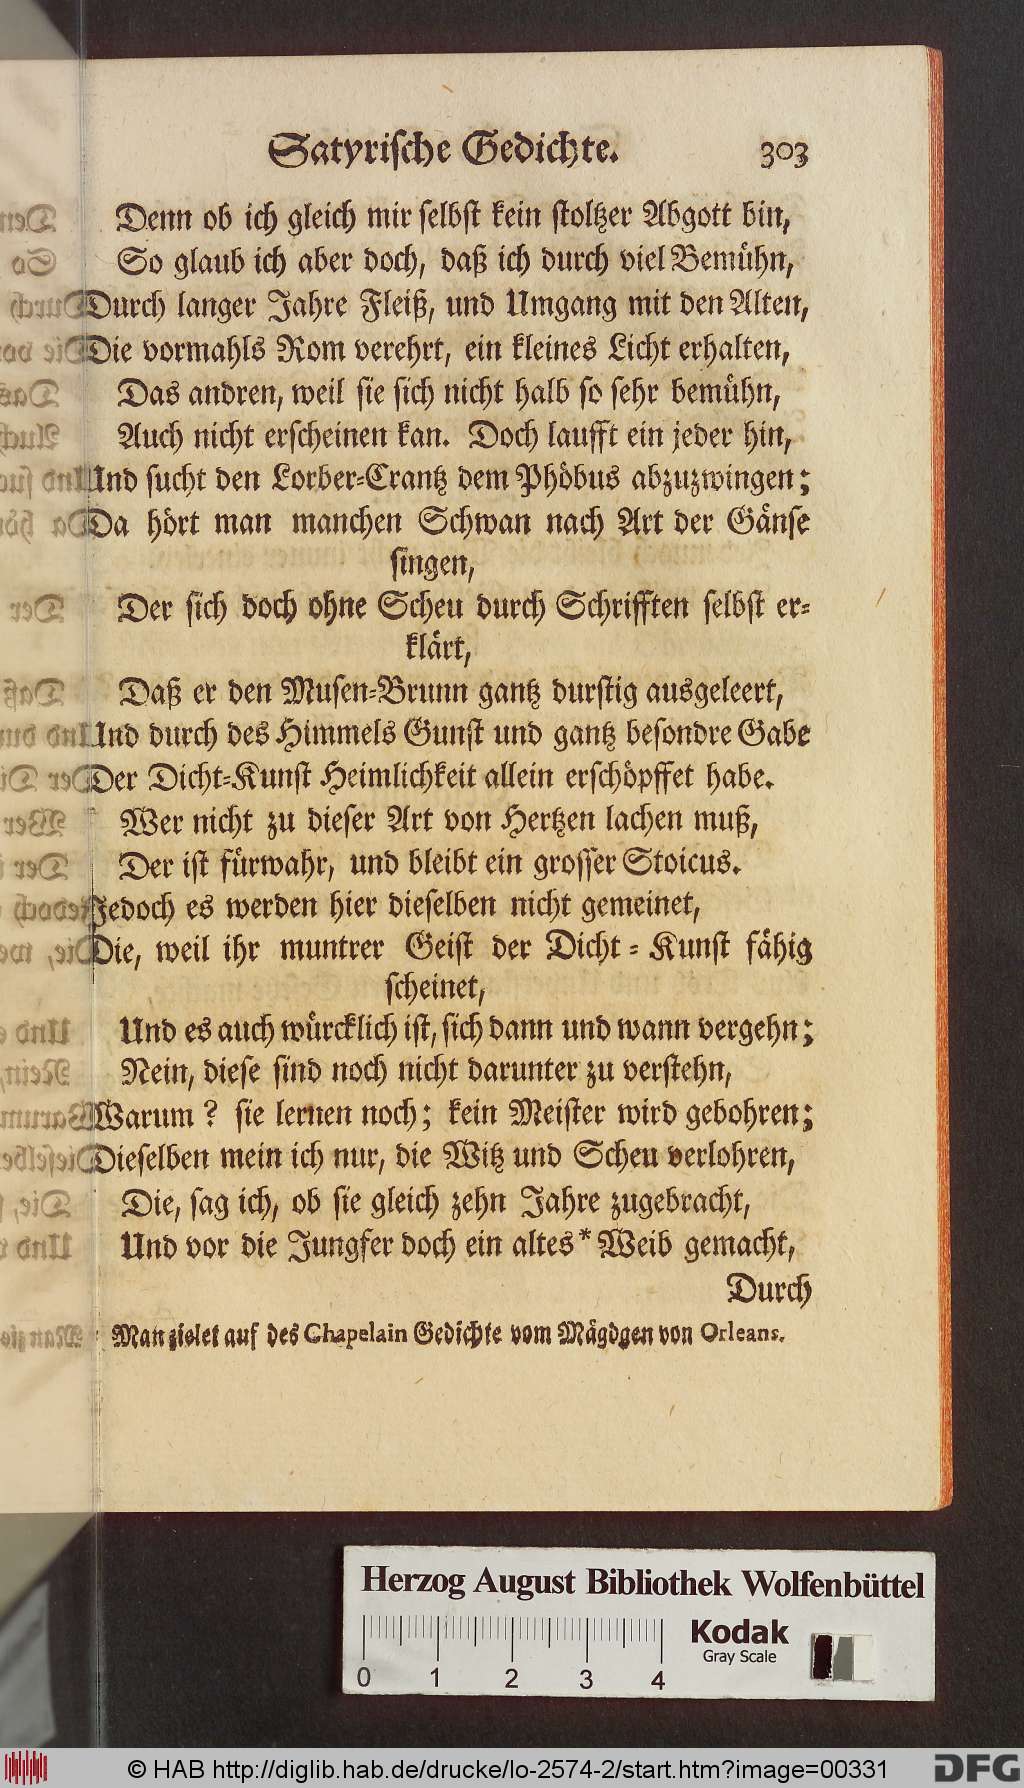 Satyrische Gedichte. 303
Denn ob ich gleich mir selbst kein stoltzer Abgott bin,
So glaub ich aber doch, daß ich durch viel Bemühn,
Durch langer Jahre Fleiß, und Umgang mit den Alten,
Die vormahls Rom verehrt, ein kleines Licht erhalten,
Das andren, weil sie sich nicht halb so sehr bemühn,
Auch nicht erscheinen kan. Doch laufft ein jeder hin,
Und sucht den Lorber-Crantz dem Phöbus abzuzwingen;
Da hört man manchen Schwan nach Art der Gänse
singen,
Der sich doch ohne Scheu durch Schrifften selbst er-
klärt,
Daß er den Musen-Brunn gantz durstig ausgeleert,
Und durch des Himmels Gunst und gantz besondre Gabe
Der Dicht-Kunst Heimlichkeit allein erschöpffet habe.
Wer nicht zu dieser Art von Hertzen lachen muß,
Der ist fürwahr, und bleibt ein grosser Stoicus.
Jedoch es werden hier dieselben nicht gemeinet,
Die, weil ihr muntrer Geist der Dicht-Kunst fähig
scheinet,
Und es auch würcklich ist, sich dann und wann vergehn;
Nein, diese sind noch nicht darunter zu verstehn,
Warum? sie lernen noch; kein Meister wird gebohren;
Dieselben mein ich nur, die Witz und Scheu verlohren,
Die, sag ich, ob sie gleich zehn Jahre zugebracht,
Und vor die Jungfer doch ein altes * Weib gemacht,
Durch
Man zielet auf des Chapelain Gedichte vom Mägdgen von Orleans.
Herzog August Bibliothek Wolfenbüttel
Kodak
Gray Scale
0 1 2 3 4
© HAB http://diglib.hab.de/drucke/lo-2574-2/start.htm?image=00331
DFG